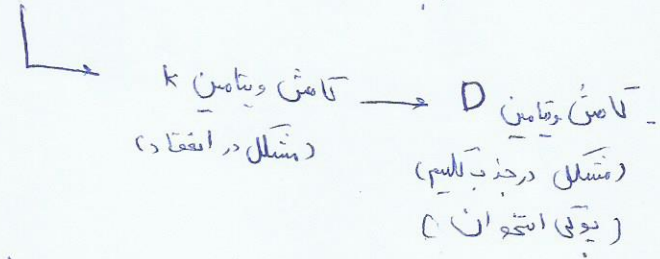 کاهش ویتامین k → کاهش ویتامین D
(مشکل در انعقاد)
(مشکل در جذب کلسیم)
(پوکی استخوان)